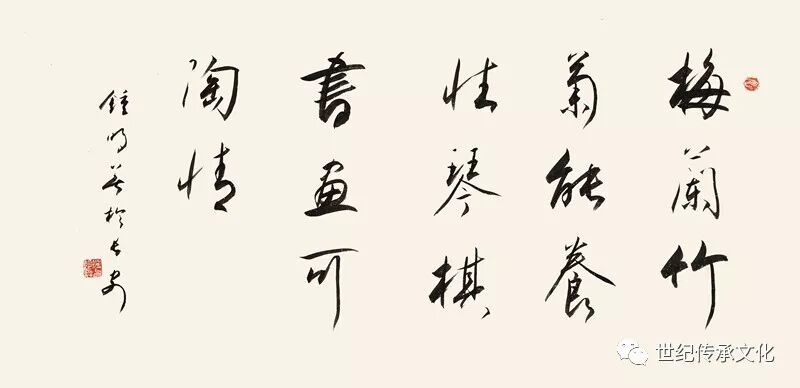 梅蘭竹
菊能養
性琴棋
書畫可
陶情
鍾明善於長安
世纪传承文化